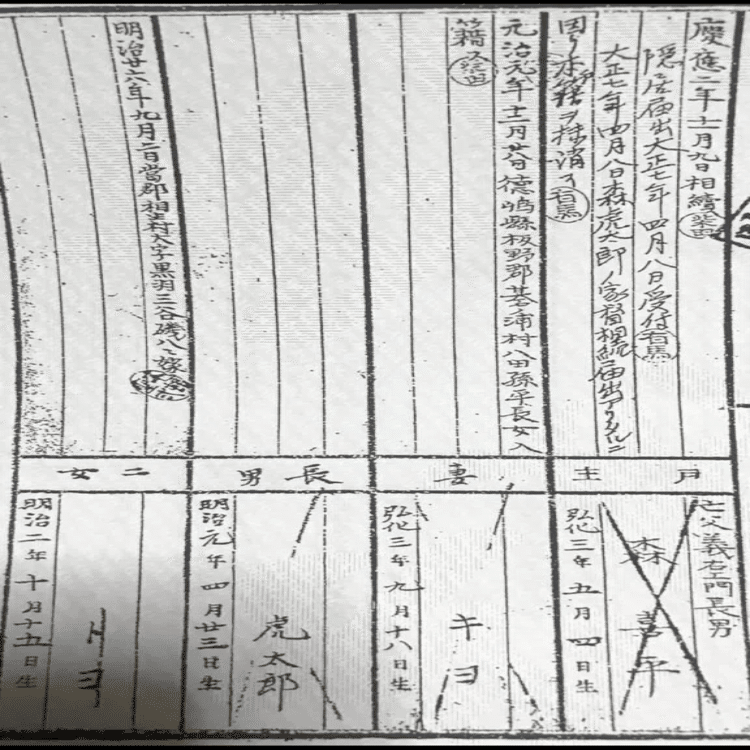 慶應二年十一月九日相續
隠居届出大正七年四月八日受付
大正七年四月八日森虎太郎ノ家督相続届出アリタルニ
因リ本籍ヲ抹消ス
元治元年十二月廿八日徳嶋縣板野郡基浦村八田孫平長女入
籍ス
明治廿六年九月二日當郡相生村大字黒羽三谷磯八ヘ嫁ス
月
主
妻
長男
二女
亡父義右エ門長男
森喜平
弘化三年五月四日生
キヨ
弘化三年九月十八日生
虎太郎
明治元年四月廿三日生
トヨ
明治二年十月十五日生